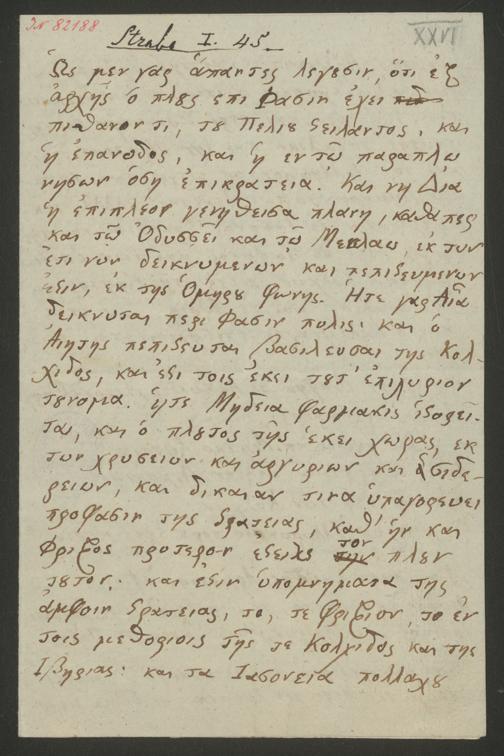 IN 82188
XXVI
Strabo I. 45.
Ὡς μεν γαρ ἁπαντες λεγουσιν, ὅτι ἐξ
ἀρχῆς ὁ πλους επι Φασιν ἐχει
πιθανον τι, του Πελιου στειλαντος, και
ἡ ἐπανοδος, και ἡ εν τῶ παραπλω
νησων ὁση ἐπικρατεια. Και νη Δια
ἡ ἐπιπλέον γενηθεισα πλανη, καθαπερ
και τῶ Ὀδυσσεῖ και τῶ Μενελαω, ἐκ των
ἐτι νυν δεικνυμενων και πεπιστευμενων
ἐστιν, ἐκ της Ὁμηρου φωνης. Ἡτε γαρ Αἶα
δεικνυται περι Φασιν πολις· και ὁ
Αιητης πεπιστευται βασιλευσαι της Κολ-
χιδος, και ἐστι τοις ἐκει τουτ' ἐπιχωριον
τουνομα. ἡτε Μηδεια φαρμακις ἱστορεῖ-
ται, και ὁ πλουτος τῆς ἐκει χωρας, εκ
των χρυσειων και ἀργυριων και σιδε-
ρειων, και δικαιαν τινα ὑπαγορευει
προφασιν της στρατειας, καθ' ἡν και
Φριξος προτερον ἐστειλε τον πλουν
τουτον· και ἐστιν ὑπομνηματα της
ἀμφοιν στρατειας, το, τε Φριξιον, το ἐν
τοις μεθοριοις τῆς τε Κολχιδος και της
Ιβηριας· και τα Ιασονεῖα πολλαχου